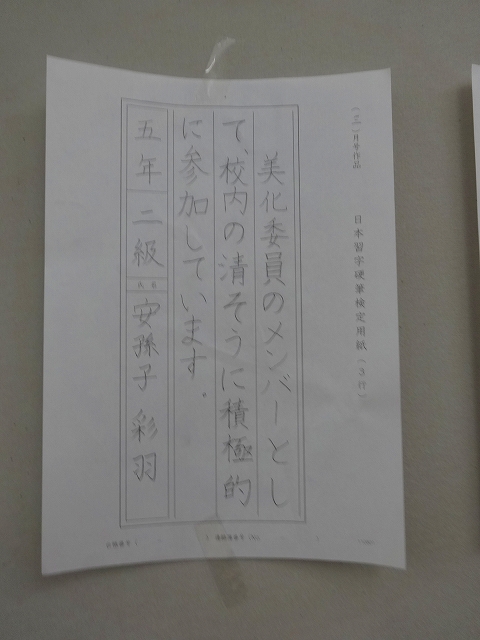 日本習字硬筆検定用紙(3行)
美化委員のメンバーとし
て、校内の清そうに積極的
に参加しています。
五年 二級 氏名 安孫子 彩羽